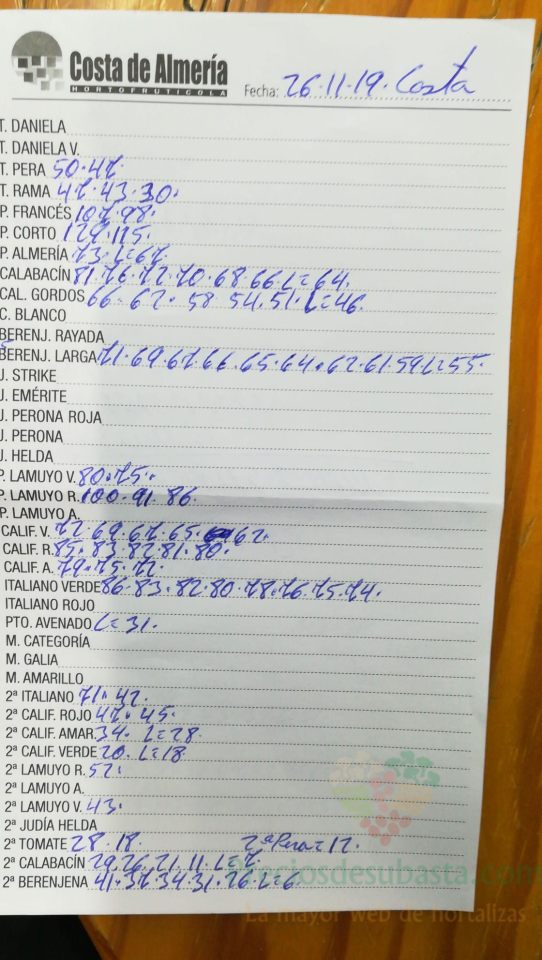 Costa de Almería
HORTOFRUTICOLA
Fecha: 26·11·19· Costa
T. DANIELA
T. DANIELA V.
T. PERA 50·47
T. RAMA 47·43·30·
P. FRANCÉS 107·98·
P. CORTO 127·115·
P. ALMERÍA 73·L=67·
CALABACÍN 81·76·72·70·68 66·L=64·
CAL. GORDOS 66- 62· 58 54·51·L=46·
C. BLANCO
BERENJ. RAYADA
BERENJ. LARGA 71·69·67·66·65·64·62·61·59·L=55·
J. STRIKE
J. EMÉRITE
J. PERONA ROJA
J. PERONA
J. HELDA
P. LAMUYO V. 80·75·
P. LAMUYO R. 100·91·86·
P. LAMUYO A.
CALIF. V. 72·69·67·65· 62·
CALIF. R. 85·83·82·81·80·
CALIF. A. 79·75·72·
ITALIANO VERDE 86·83·82·80·78·76·75·74·
ITALIANO ROJO
PTO. AVENADO L=31·
M. CATEGORÍA
M. GALIA
M. AMARILLO
2ª ITALIANO 71·42·
2ª CALIF. ROJO 47·45·
2ª CALIF. AMAR. 34· L=28·
2ª CALIF. VERDE 20· L=18·
2ª LAMUYO R. 52·
2ª LAMUYO A.
2ª LAMUYO V. 43·
2ª JUDÍA HELDA
2ª TOMATE 28·18· 2ª Pera=12·
2ª CALABACÍN 29·26·21·11·L=7·
2ª BERENJENA 41·37·34·31·26·L=6·
preciosdesubasta.com
La mayor web de hortalizas